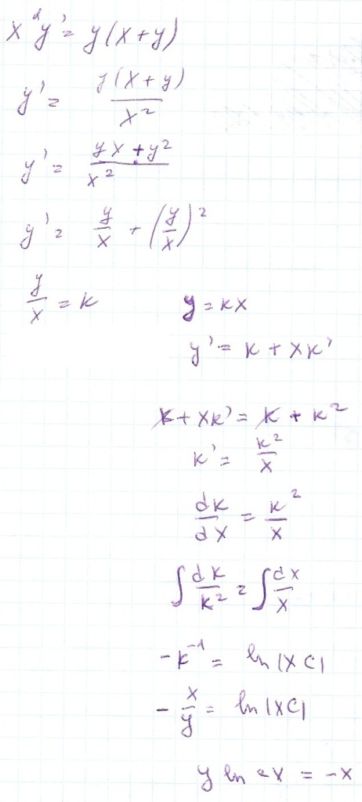 x²y' = y(x+y)
y' = y(x+y)/x²
y' = (yx+y²)/x²
y' = y/x + (y/x)²
y/x = k    y = kx
y' = k + xk'
k + xk' = k + k²
k' = k²/x
dk/dx = k²/x
∫ dk/k² = ∫ dx/x
-k⁻¹ = ln|xC|
-x/y = ln|xC|
y ln cx = -x